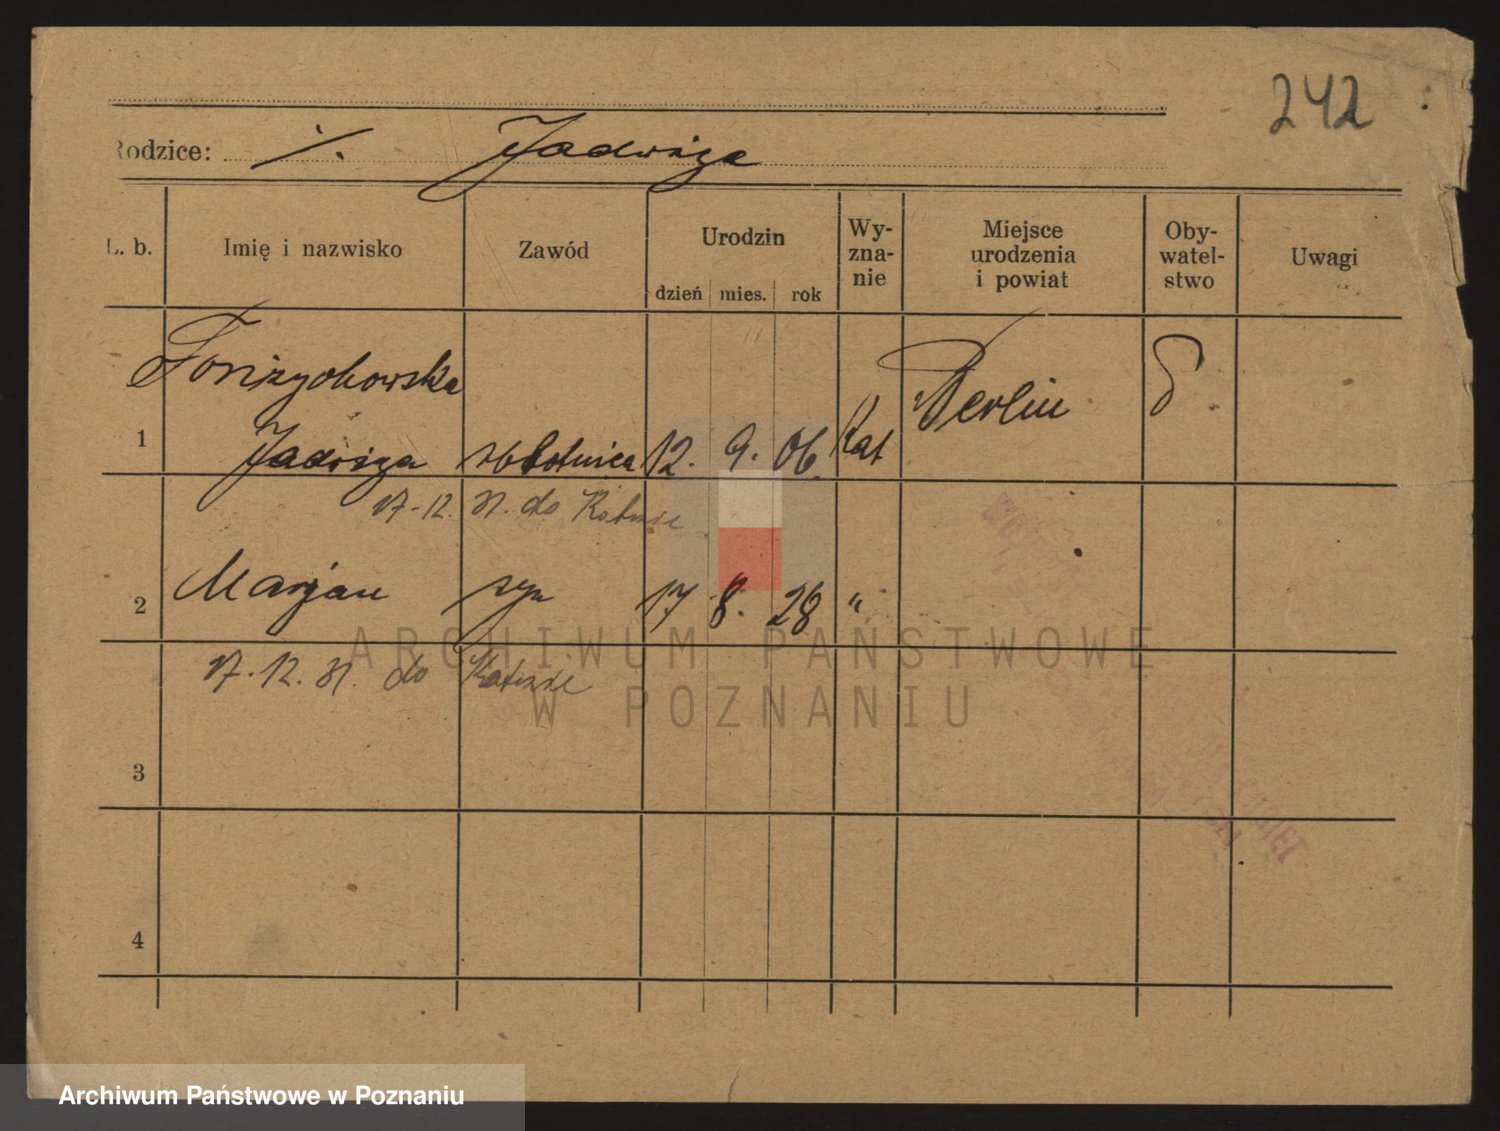 242
Rodzice: ./. Jadwiga
L. b. Imię i nazwisko Zawód Urodzin dzień mies. rok Wy-znanie Miejsce urodzenia i powiat Oby-watel-stwo Uwagi
1 Jadwiga robotnica 12. 9. 06. Kat Berlin
17.-12. 31. do
2 Marjan syn 17 8. 28 "
17.12.31. do
3
4
ARCHIWUM PAŃSTWOWE
W POZNANIU
Archiwum Państwowe w Poznaniu